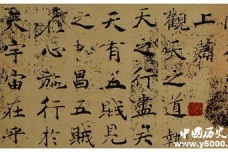 上篇
觀天之道執
天之行盡矣
天有五賊見
之昌五賊
在心施行於
天宇宙在乎
中国历史
www.y5000.c